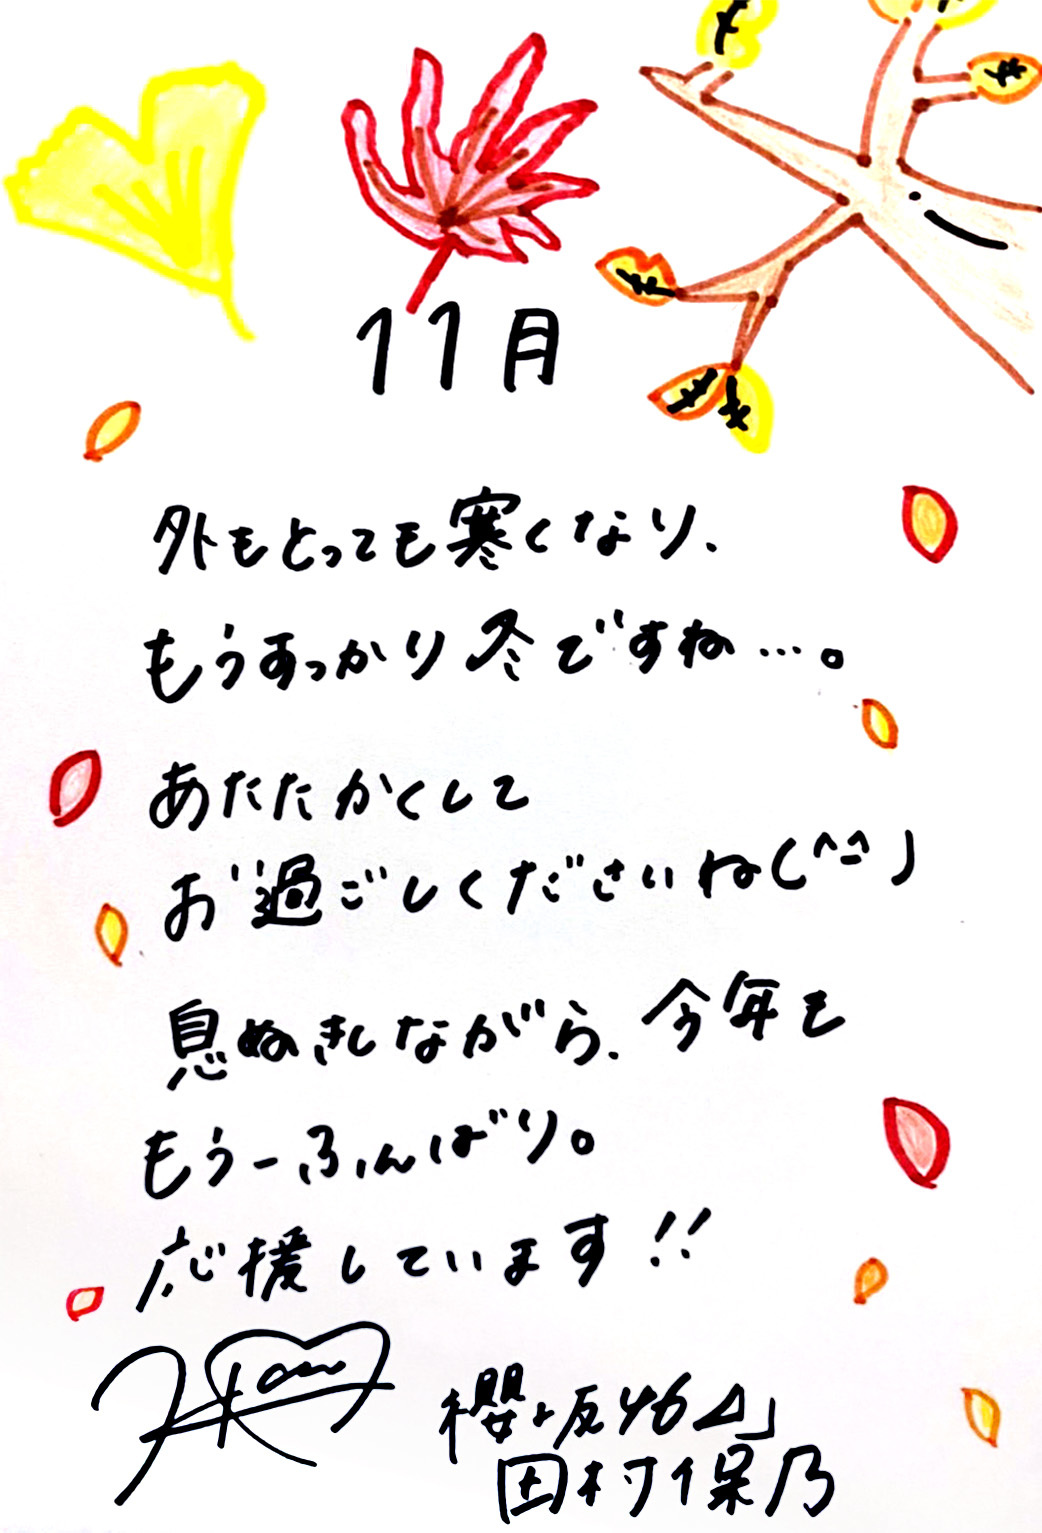 11月
外もとっても寒くなり、
もうすっかり冬ですね…。
あたたかくして
お過ごしくださいね(^^)
息ぬきしながら、今年も
もう一ふんばり。
応援しています!!
櫻坂46
田村保乃